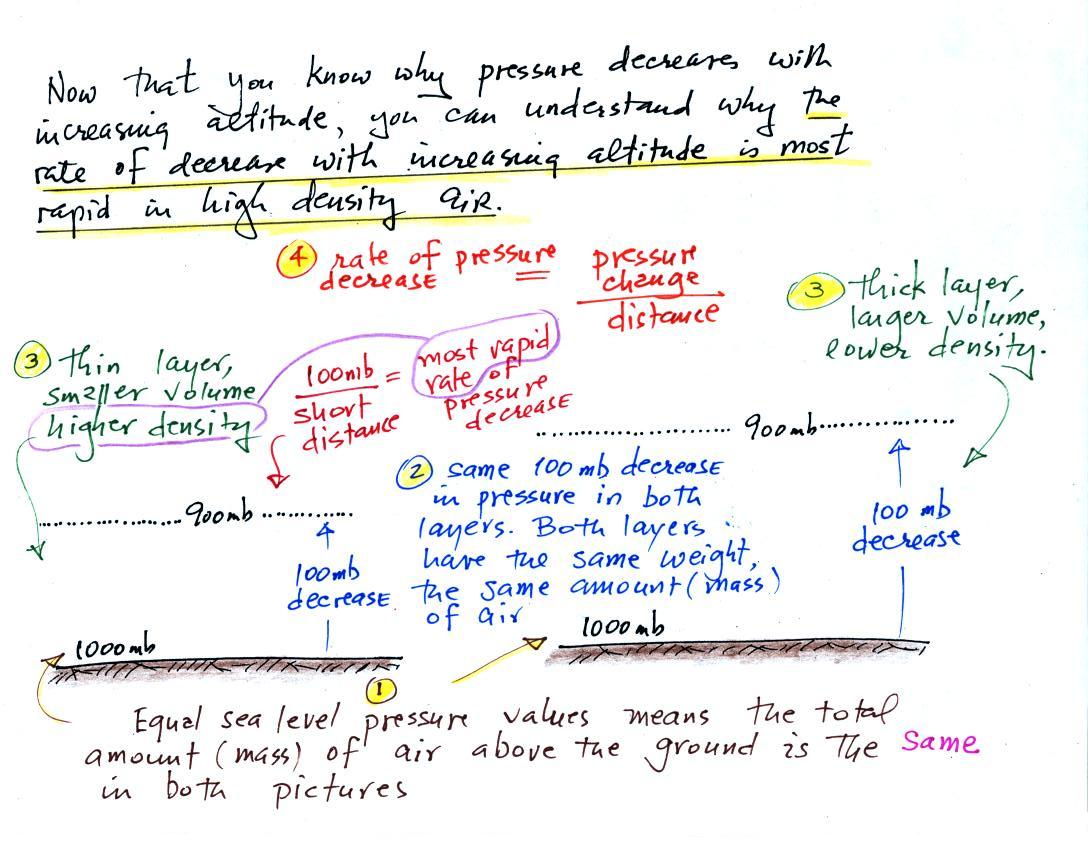 Now that you know why pressure decreases with
increasing altitude, you can understand why the
rate of decrease with increasing altitude is most
rapid in high density air.
4 rate of pressure
decrease
pressure
change
distance
3 thick layer,
larger volume,
lower density.
3 thin layer,
smaller volume
higher density
100mb
short
distance
= most rapid
rate of
pressure
decrease
900mb
900mb
2 same 100 mb decrease
in pressure in both
layers. Both layers
have the same weight,
the same amount (mass)
of air
100mb
decrease
100 mb
decrease
1000mb
1000mb
1
Equal sea level pressure values means the total
amount (mass) of air above the ground is the same
in both pictures